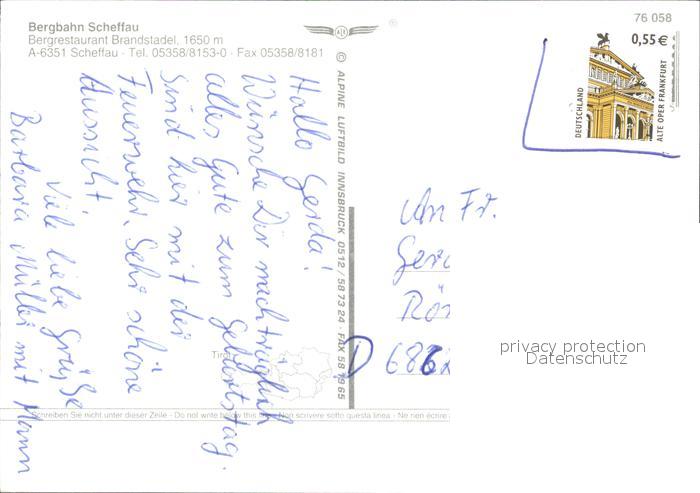 Bergbahn Scheffau
Bergrestaurant Brandstadel, 1650 m
A-6351 Scheffau - Tel. 05358/8153-0 - Fax 05358/8181
76 058
0,55 €
DEUTSCHLAND
ALTE OPER FRANKFURT
© ALPINE LUFTBILD INNSBRUCK 0512/587324 - FAX 587965
Hallo Gerda!
Wünsche Dir nachträglich
alles Gute zum Geburtstag.
Sind hier mit der
Feuerwehr. Sehr schöne
Aussicht.
Viele liebe Grüße
Barbara Müller mit Mann
An Fr.
Ger
Rö
D 686
Tirol
Schreiben Sie nicht unter dieser Zeile - Do not write below this line - Non scrivere sotto questa linea - Ne rien écrire
privacy protection
Datenschutz